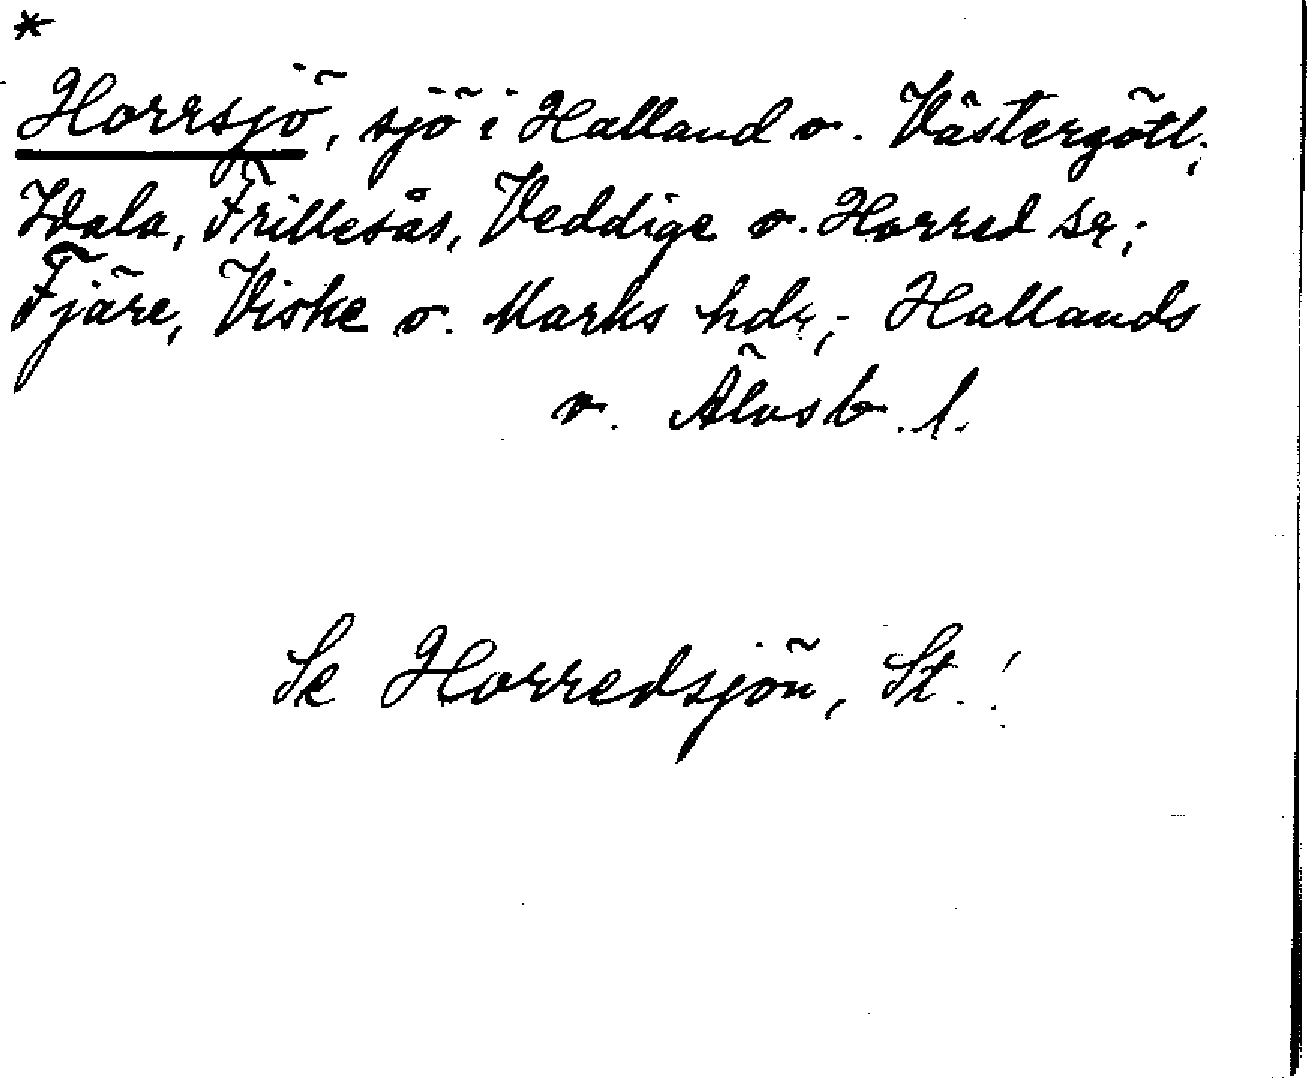 *
Horrsjö, sjö i Halland o. Västergötl.;
Idala, Frillesås, Veddige o. Horred sr;
Fjäre, Viske o. Marks hdr; Hallands
o. Älvsb. l.
Se Horredsjön, St.!